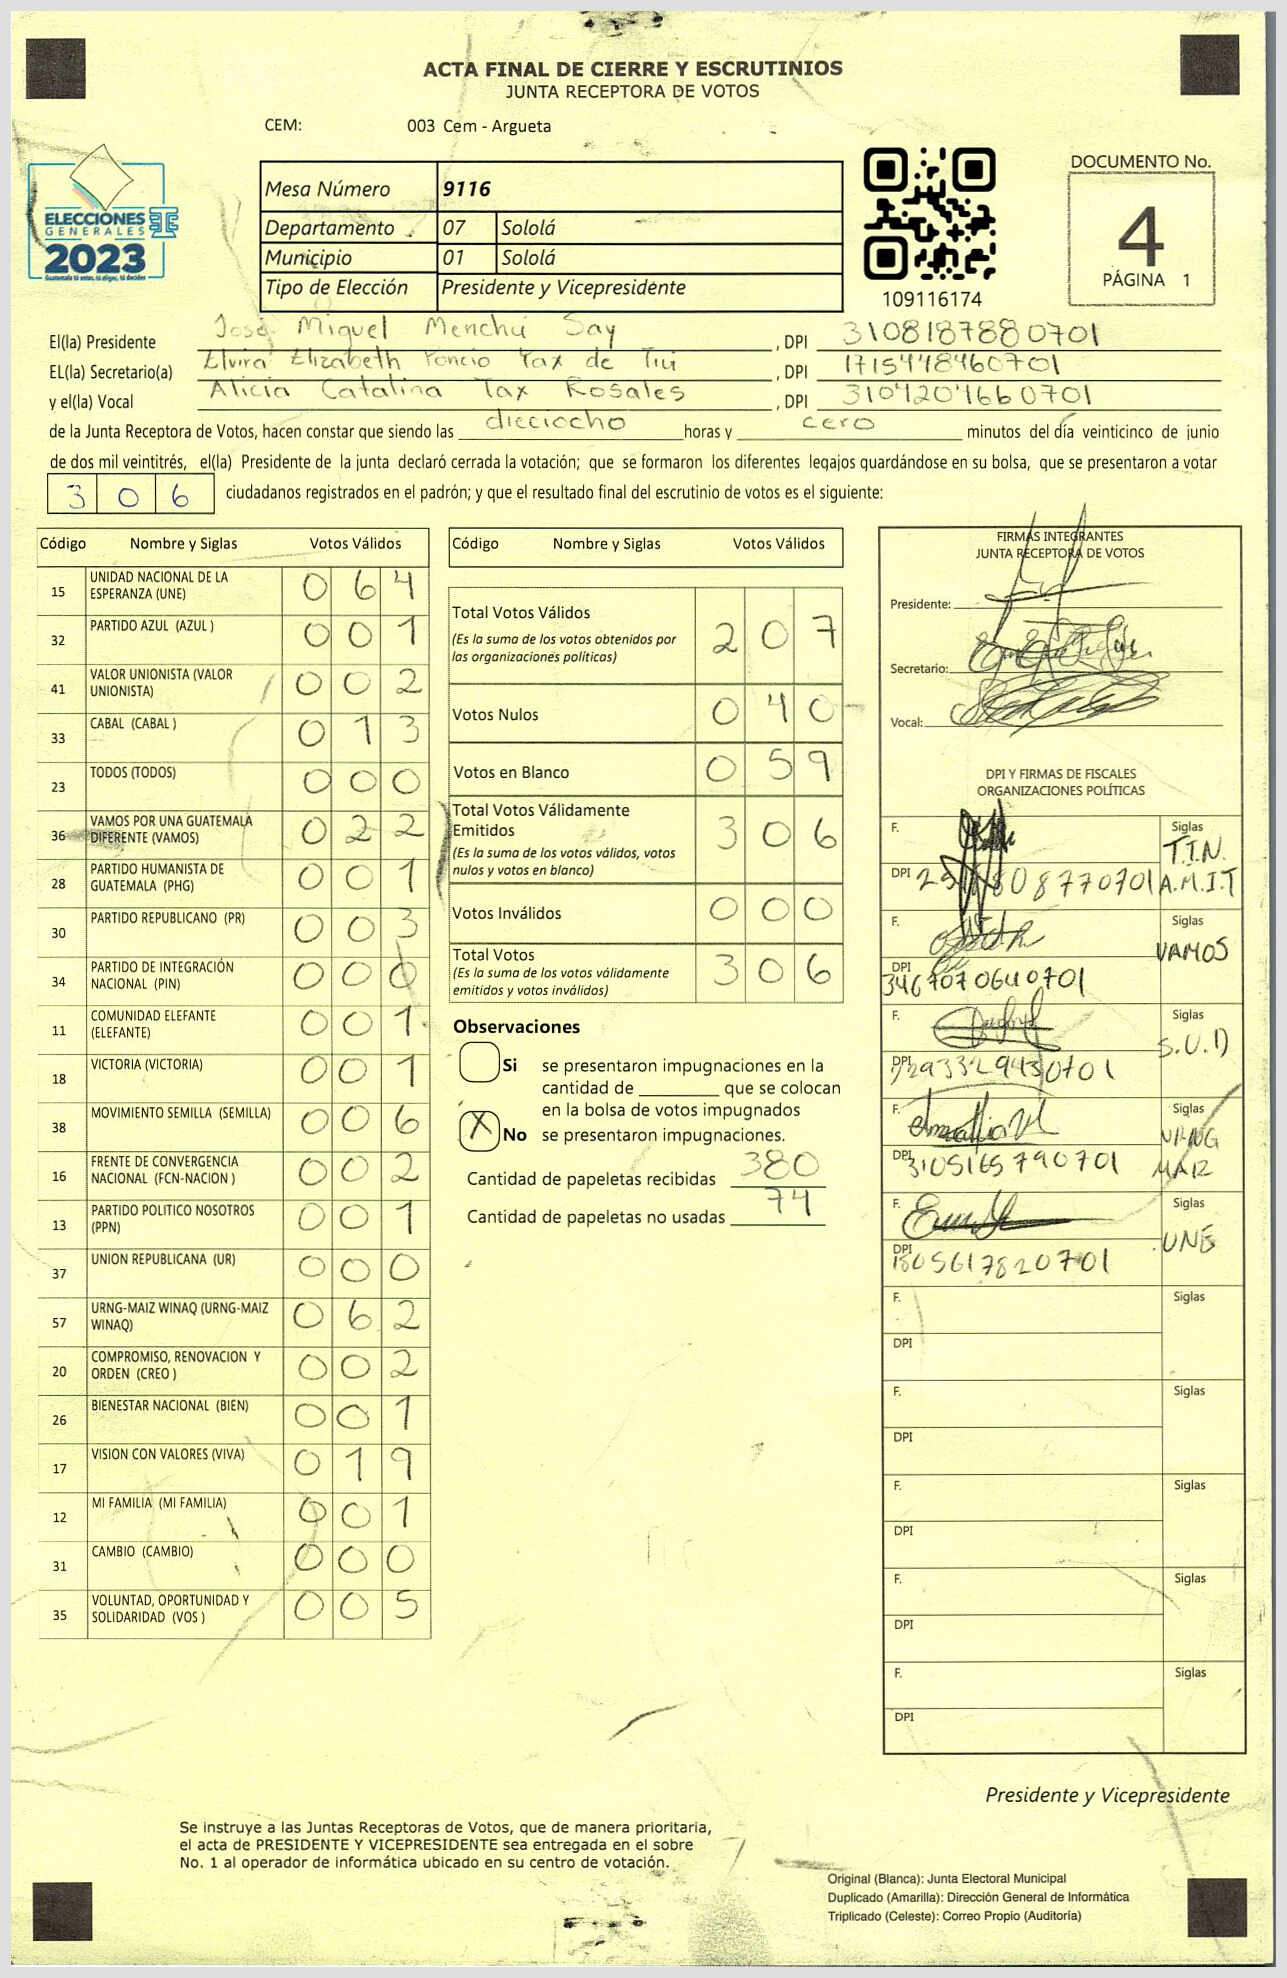 ACTA FINAL DE CIERRE Y ESCRUTINIOS
JUNTA RECEPTORA DE VOTOS
CEM: 003 Cem - Argueta
ELECCIONES
GENERALES
2023
Guatemala tú votas, tú eliges, tú decides
Mesa Número 9116
Departamento 07 Sololá
Municipio 01 Sololá
Tipo de Elección Presidente y Vicepresidente
109116174
DOCUMENTO No.
4
PÁGINA 1
El(la) Presidente José Miguel Menchú Say , DPI 3108187880701
EL(la) Secretario(a) Elvira Elizabeth Poncio Tax de Tui , DPI 1715448460701
y el(la) Vocal Alicia Catalina Tax Rosales , DPI 3104204660701
de la Junta Receptora de Votos, hacen constar que siendo las dieciocho horas y cero minutos del día veinticinco de junio
de dos mil veintitrés, el(la) Presidente de la junta declaró cerrada la votación; que se formaron los diferentes legajos guardándose en su bolsa, que se presentaron a votar
306 ciudadanos registrados en el padrón; y que el resultado final del escrutinio de votos es el siguiente:
Código Nombre y Siglas Votos Válidos
15 UNIDAD NACIONAL DE LA ESPERANZA (UNE) 064
32 PARTIDO AZUL (AZUL ) 001
41 VALOR UNIONISTA (VALOR UNIONISTA) 002
33 CABAL (CABAL ) 013
23 TODOS (TODOS) 000
36 VAMOS POR UNA GUATEMALA DIFERENTE (VAMOS) 022
28 PARTIDO HUMANISTA DE GUATEMALA (PHG) 001
30 PARTIDO REPUBLICANO (PR) 003
34 PARTIDO DE INTEGRACIÓN NACIONAL (PIN) 000
11 COMUNIDAD ELEFANTE (ELEFANTE) 001
18 VICTORIA (VICTORIA) 001
38 MOVIMIENTO SEMILLA (SEMILLA) 006
16 FRENTE DE CONVERGENCIA NACIONAL (FCN-NACION ) 002
13 PARTIDO POLITICO NOSOTROS (PPN) 001
37 UNION REPUBLICANA (UR) 000
57 URNG-MAIZ WINAQ (URNG-MAIZ WINAQ) 062
20 COMPROMISO, RENOVACION Y ORDEN (CREO ) 002
26 BIENESTAR NACIONAL (BIEN) 001
17 VISION CON VALORES (VIVA) 019
12 MI FAMILIA (MI FAMILIA) 001
31 CAMBIO (CAMBIO) 000
35 VOLUNTAD, OPORTUNIDAD Y SOLIDARIDAD (VOS ) 005
Código Nombre y Siglas Votos Válidos
Total Votos Válidos 207
(Es la suma de los votos obtenidos por las organizaciones políticas)
Votos Nulos 040
Votos en Blanco 059
Total Votos Válidamente Emitidos 306
(Es la suma de los votos válidos, votos nulos y votos en blanco)
Votos Inválidos 000
Total Votos 306
(Es la suma de los votos válidamente emitidos y votos inválidos)
Observaciones
Si se presentaron impugnaciones en la
cantidad de ________ que se colocan
en la bolsa de votos impugnados
X No se presentaron impugnaciones.
Cantidad de papeletas recibidas 380
Cantidad de papeletas no usadas 74
FIRMAS INTEGRANTES
JUNTA RECEPTORA DE VOTOS
Presidente:
Secretario:
Vocal:
DPI Y FIRMAS DE FISCALES
ORGANIZACIONES POLÍTICAS
F. Siglas T.I.N.
DPI A.M.I.T
F. Siglas VAMOS
DPI 3467070640701
F. Siglas S.U.D
DPI
F. Siglas
DPI 3105165790701 MAIZ
F. Siglas UNE
DPI 1805617820701
F. Siglas
DPI
F. Siglas
DPI
F. Siglas
DPI
F. Siglas
DPI
F. Siglas
DPI
Presidente y Vicepresidente
Se instruye a las Juntas Receptoras de Votos, que de manera prioritaria,
el acta de PRESIDENTE Y VICEPRESIDENTE sea entregada en el sobre
No. 1 al operador de informática ubicado en su centro de votación.
Original (Blanca): Junta Electoral Municipal
Duplicado (Amarilla): Dirección General de Informática
Triplicado (Celeste): Correo Propio (Auditoría)